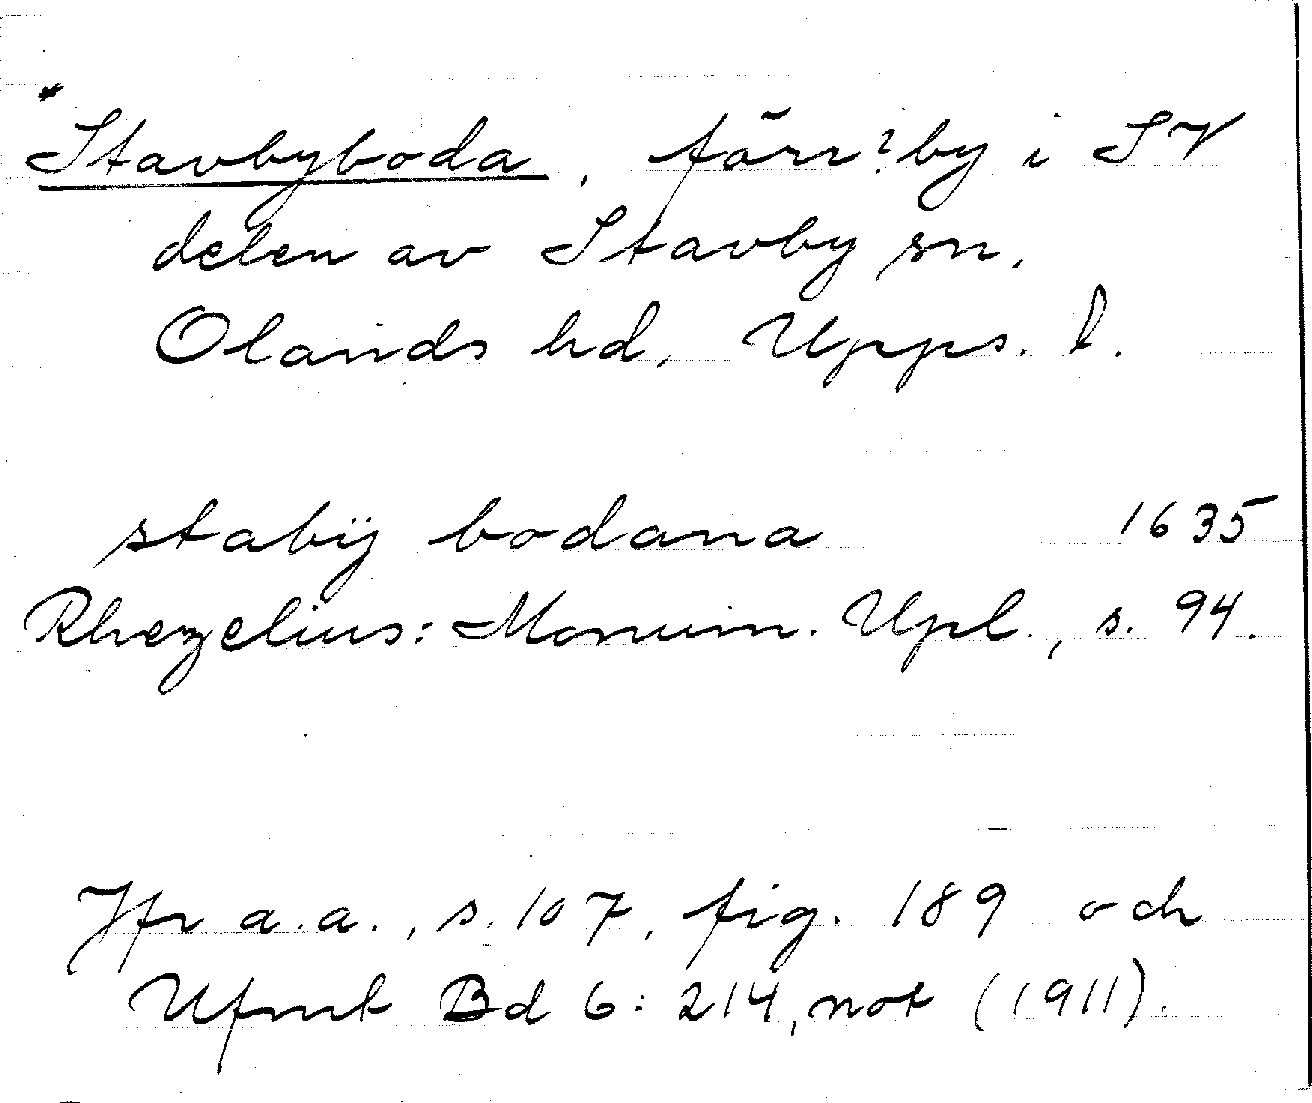 *Stavbyboda, förr? by i SV
delen av Stavby sn,
Olands hd, Upps. l.
stabÿ bodana 1635
Rhezelius: Monum. Upl., s. 94.
Jfr a.a., s. 107, fig. 189 och
Ufmt Bd 6: 214, not (1911).